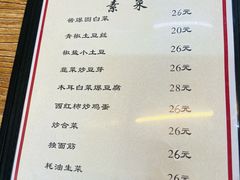 素菜
酱爆圆白菜 26元
青椒土豆丝 20元
椒盐小土豆 26元
韭菜炒豆芽 26元
木耳白菜爆豆腐 28元
西红柿炒鸡蛋 26元
炒合菜 26元
独面筋 26元
耗油生菜 26元